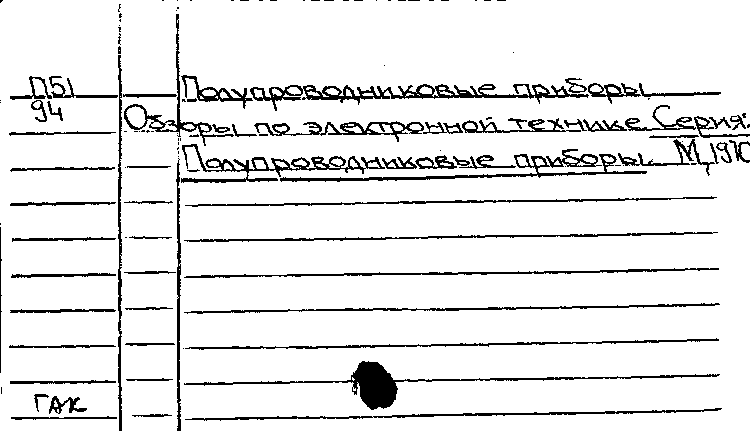 П51 Полупроводниковые приборы
94 Обзоры по электронной технике. Серия:
Полупроводниковые приборы. М, 1970
ГАК